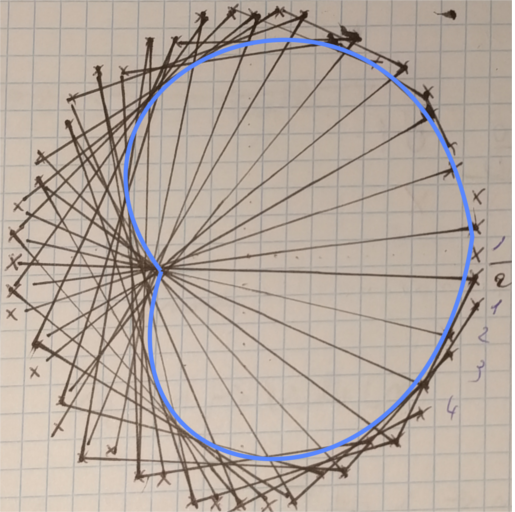 1
2
1
2
3
4